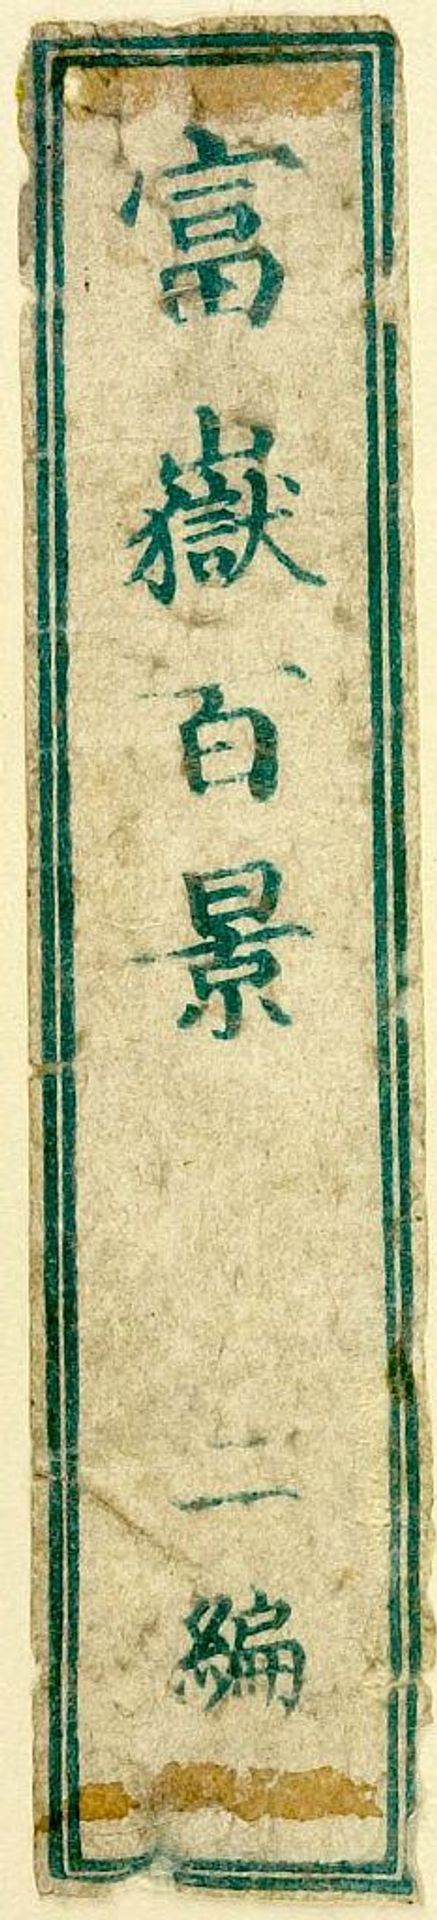 富嶽百景 二編